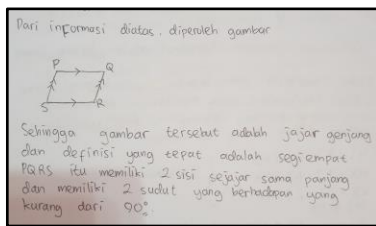 Dari informasi diatas, diperoleh gambar
P Q
S R
Sehingga gambar tersebut adalah jajar genjang
dan definisi yang tepat adalah segi empat
PQRS itu memiliki 2 sisi sejajar sama panjang
dan memiliki 2 sudut yang berhadapan yang
kurang dari 90°.